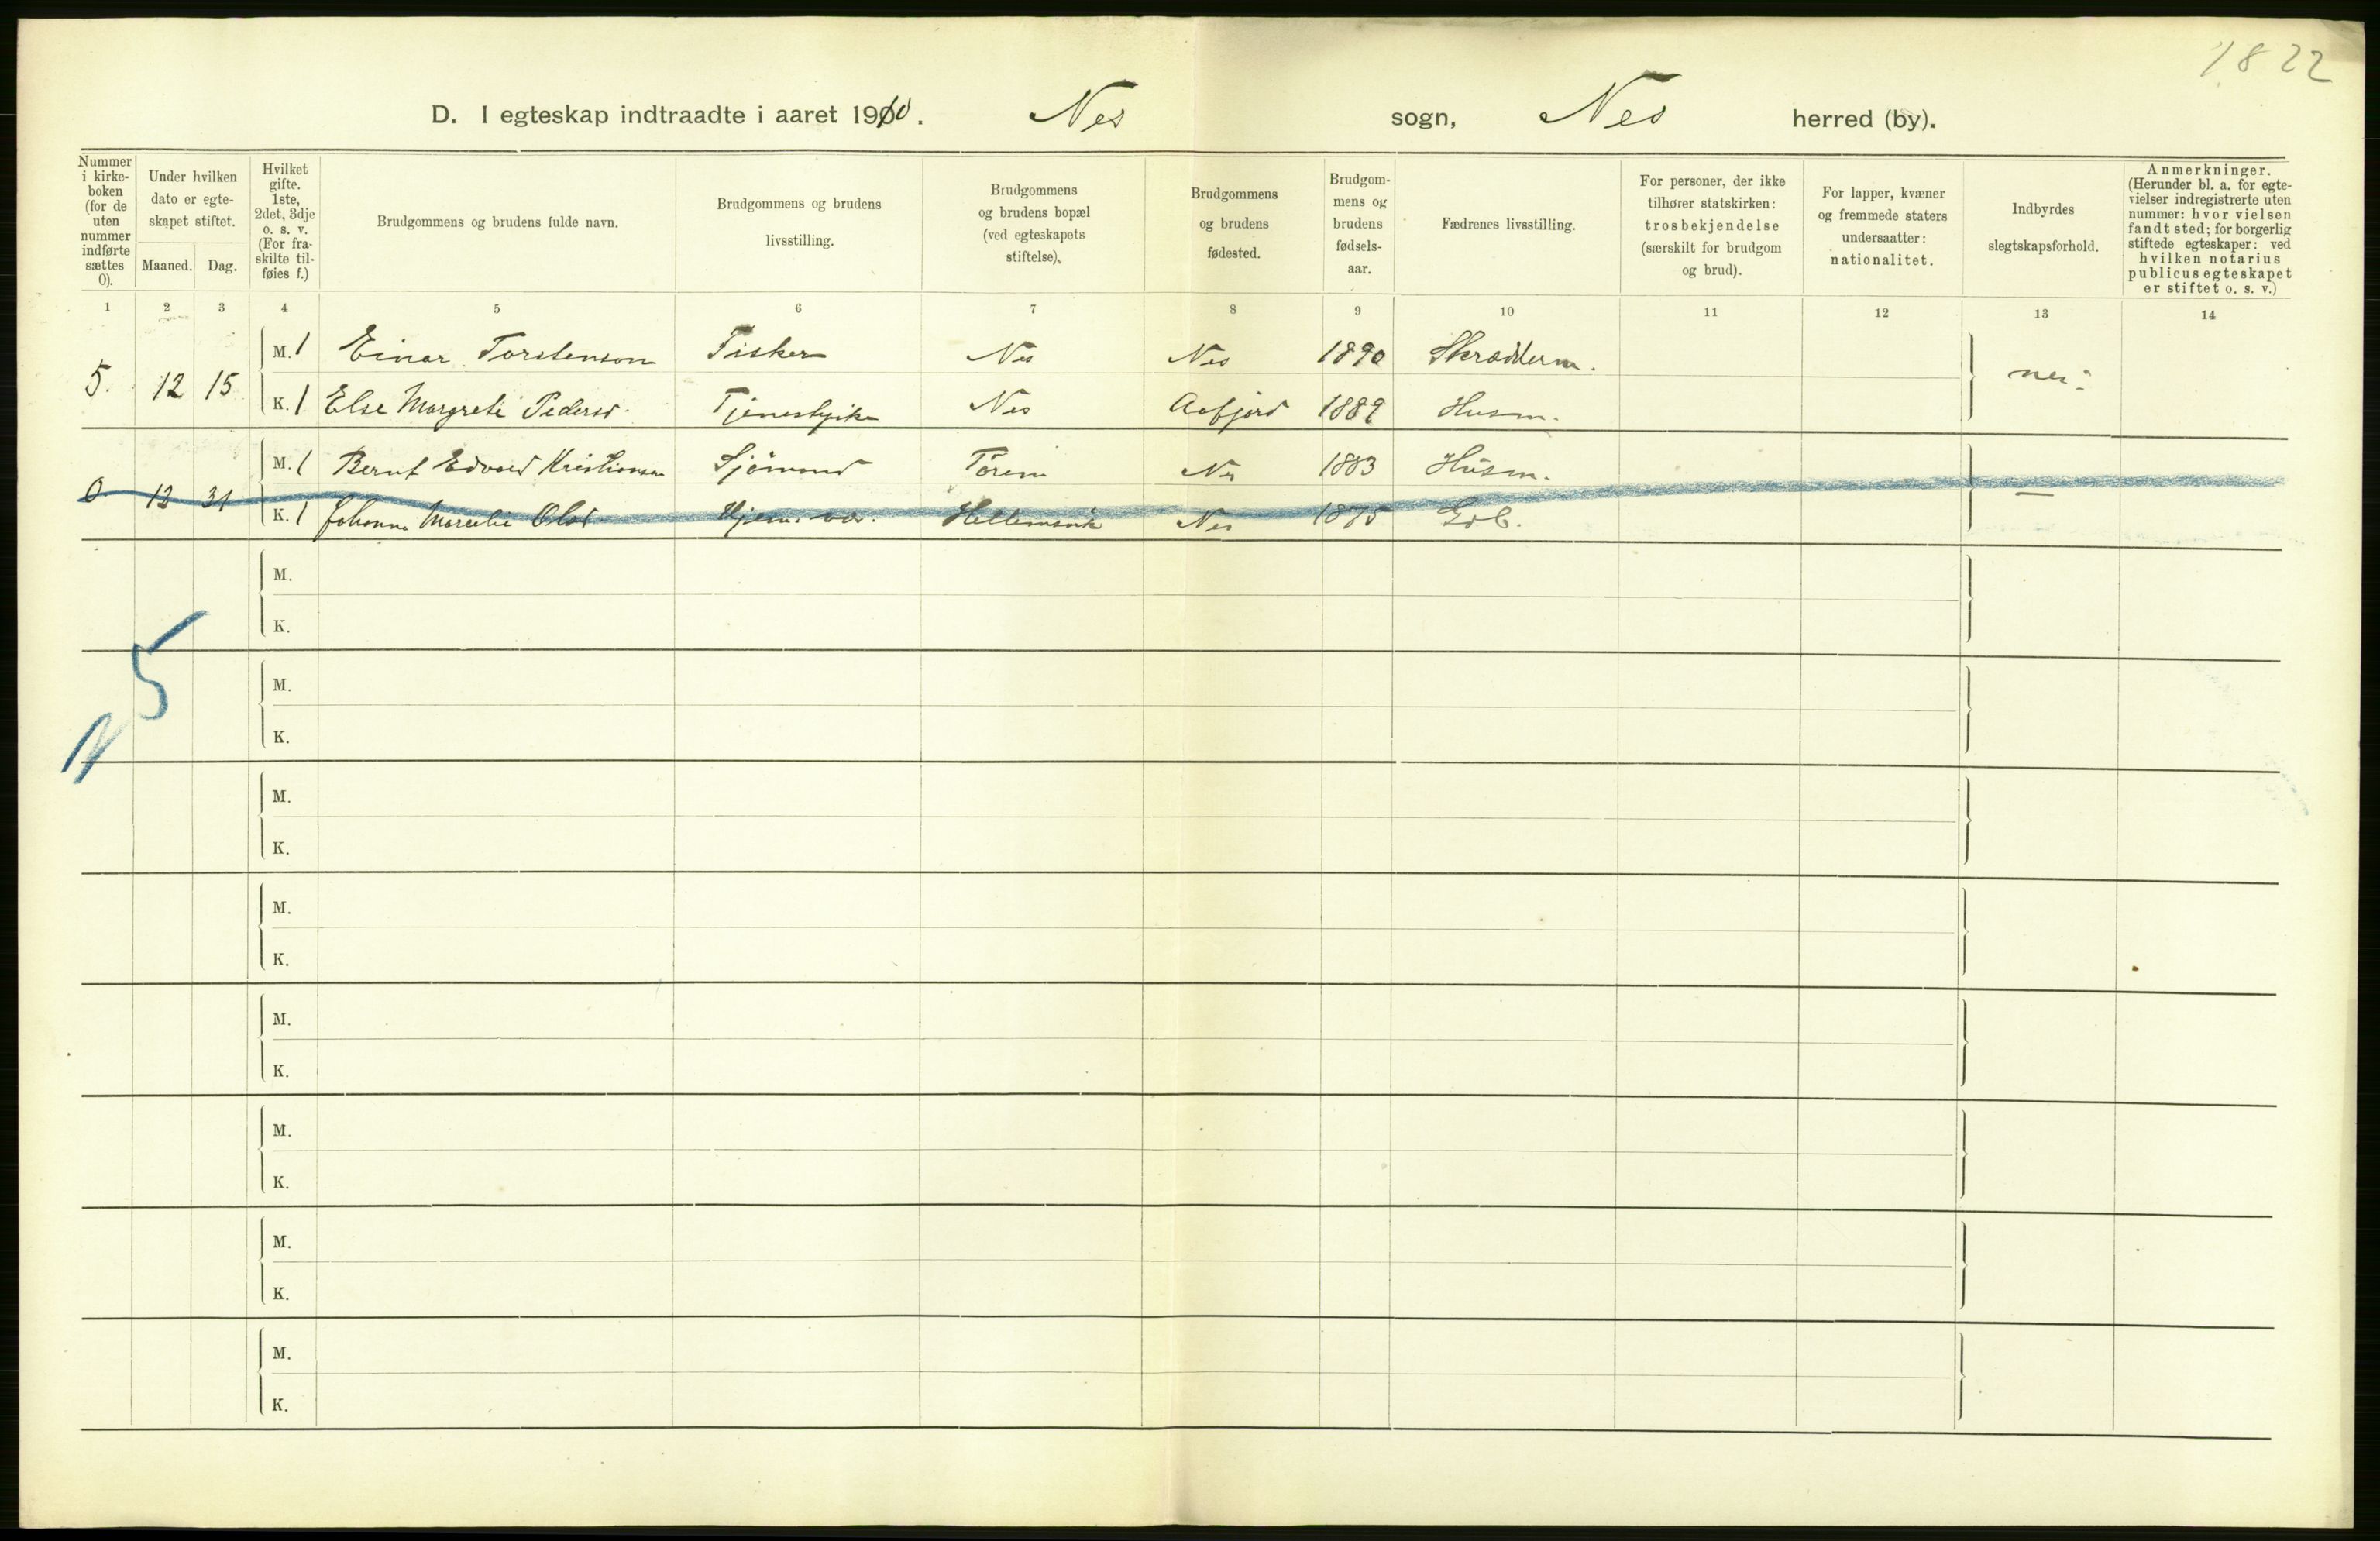 1822
D. I egteskap indtraadte i aaret 1910. Nes sogn, Nes herred (by).
Nummer i kirke-boken (for de uten nummer indførte sættes 0).
Under hvilken dato er egte-skapet stiftet.
Maaned. Dag.
Hvilket gifte. 1ste, 2det, 3dje o. s. v. (For fra-skilte til-føies f.)
Brudgommens og brudens fulde navn.
Brudgommens og brudens livsstilling.
Brudgommens og brudens bopæl (ved egteskapets stiftelse).
Brudgommens og brudens fødested.
Brudgom-mens og brudens fødsels-aar.
Fædrenes livsstilling.
For personer, der ikke tilhører statskirken: trosbekjendelse (særskilt for brudgom og brud).
For lapper, kvæner og fremmede staters undersaatter: nationalitet.
Indbyrdes slegtskapsforhold.
Anmerkninger. (Herunder bl. a. for egte-vielser indregistrerte uten nummer: hvor vielsen fandt sted; for borgerlig stiftede egteskaper: ved hvilken notarius publicus egteskapet er stiftet o. s. v.)
1 2 3 4 5 6 7 8 9 10 11 12 13 14
M. 1 Einar Torstenson Fisker Nes Nes 1890 Skrædderm.
5. 12 15 nei
K. 1 Else Margrete Pedersd. Tjenestpike Nes Aafjord 1889 Husm.
M. 1 Bernt Edvard Kristiansen Sjömand Nes 1883 Husm.
0 12 31 —
K. 1 Johanna Olsd. Hjem. Nes 1875 Gdb.
M.
K.
5
M.
K.
M.
K.
M.
K.
M.
K.
M.
K.
M.
K.
M.
K.